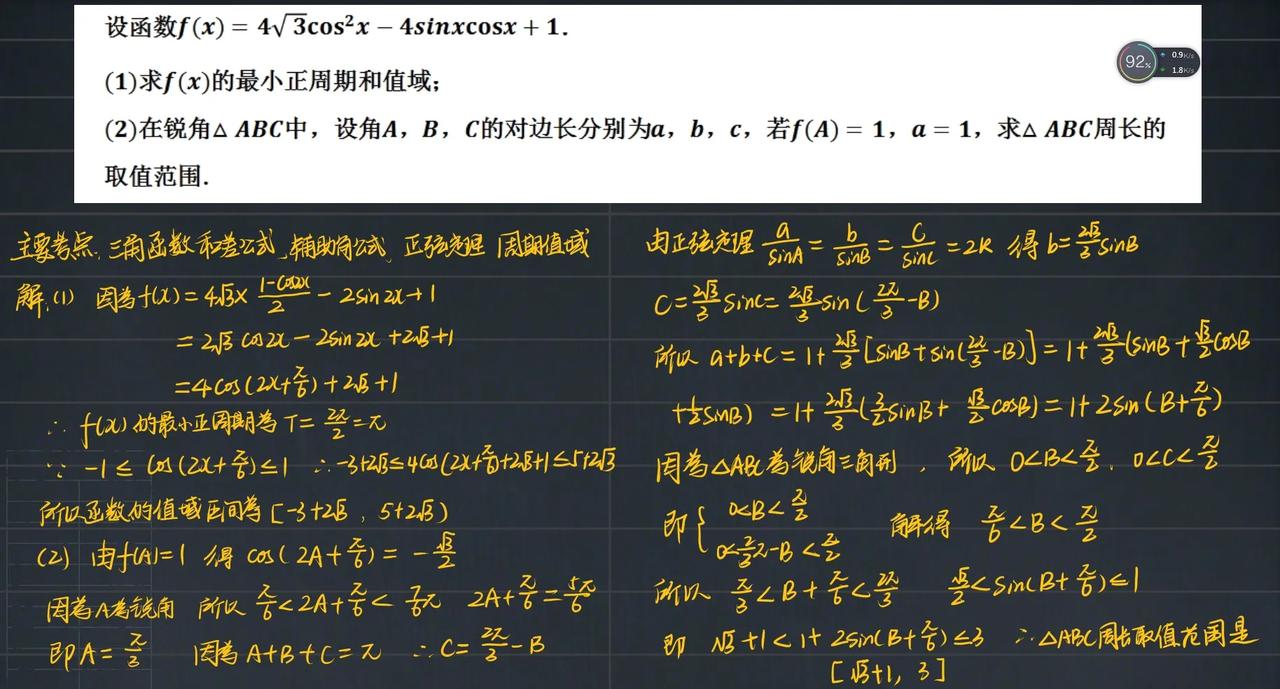 设函数f(x) = 4√3cos²x − 4sinxcosx + 1.
(1)求f(x)的最小正周期和值域;
(2)在锐角△ ABC中，设角A，B，C的对边长分别为a，b，c，若f(A) = 1，a = 1，求△ ABC周长的
取值范围.
92%
0.9K/s
1.8K/s
主要考点、三角函数和差公式、辅助角公式、正弦定理 周期值域
解.(1) 因为f(x) = 4√3 × (1-cos2x)/2 - 2sin2x+1
= 2√3 cos2x - 2sin2x + 2√3 + 1
= 4cos(2x+π/6) + 2√3 + 1
∴ f(x)的最小正周期为 T = 2π/2 = π
∵ -1 ≤ cos(2x+π/6) ≤ 1 ∴ -3+2√3 ≤ 4cos(2x+π/6)+2√3+1 ≤ 5+2√3
所以函数的值域区间为 [-3+2√3 , 5+2√3)
(2) 由f(A)=1 得 cos(2A+π/6) = -√3/2
因为A为锐角 所以 π/6 < 2A+π/6 < 7/6π 2A+π/6 = 5π/6
即A = π/3 因为 A+B+C = π ∴ C = 2π/3 - B
由正弦定理 a/sinA = b/sinB = c/sinC = 2R 得 b = 2√3/3 sinB
C = 2√3/3 sinC = 2√3/3 sin(2π/3 - B)
所以 a+b+c = 1+ 2√3/3 [sinB+sin(2π/3-B)] = 1+ 2√3/3 (sinB + √3/2 cosB
+ 1/2 sinB) = 1+ 2√3/3 (3/2 sinB + √3/2 cosB) = 1+2sin(B+π/6)
因为△ABC为锐角三角形 , 所以 0<B<π/2 , 0<C<π/2
即 { 0<B<π/2
0<2/3π-B<π/2 解得 π/6 < B < π/2
所以 π/3 < B+π/6 < 2π/3 √3/2 < sin(B+π/6) ≤ 1
即 √3+1 < 1+2sin(B+π/6) ≤ 3 ∴ △ABC周长取值范围是
[√3+1, 3]